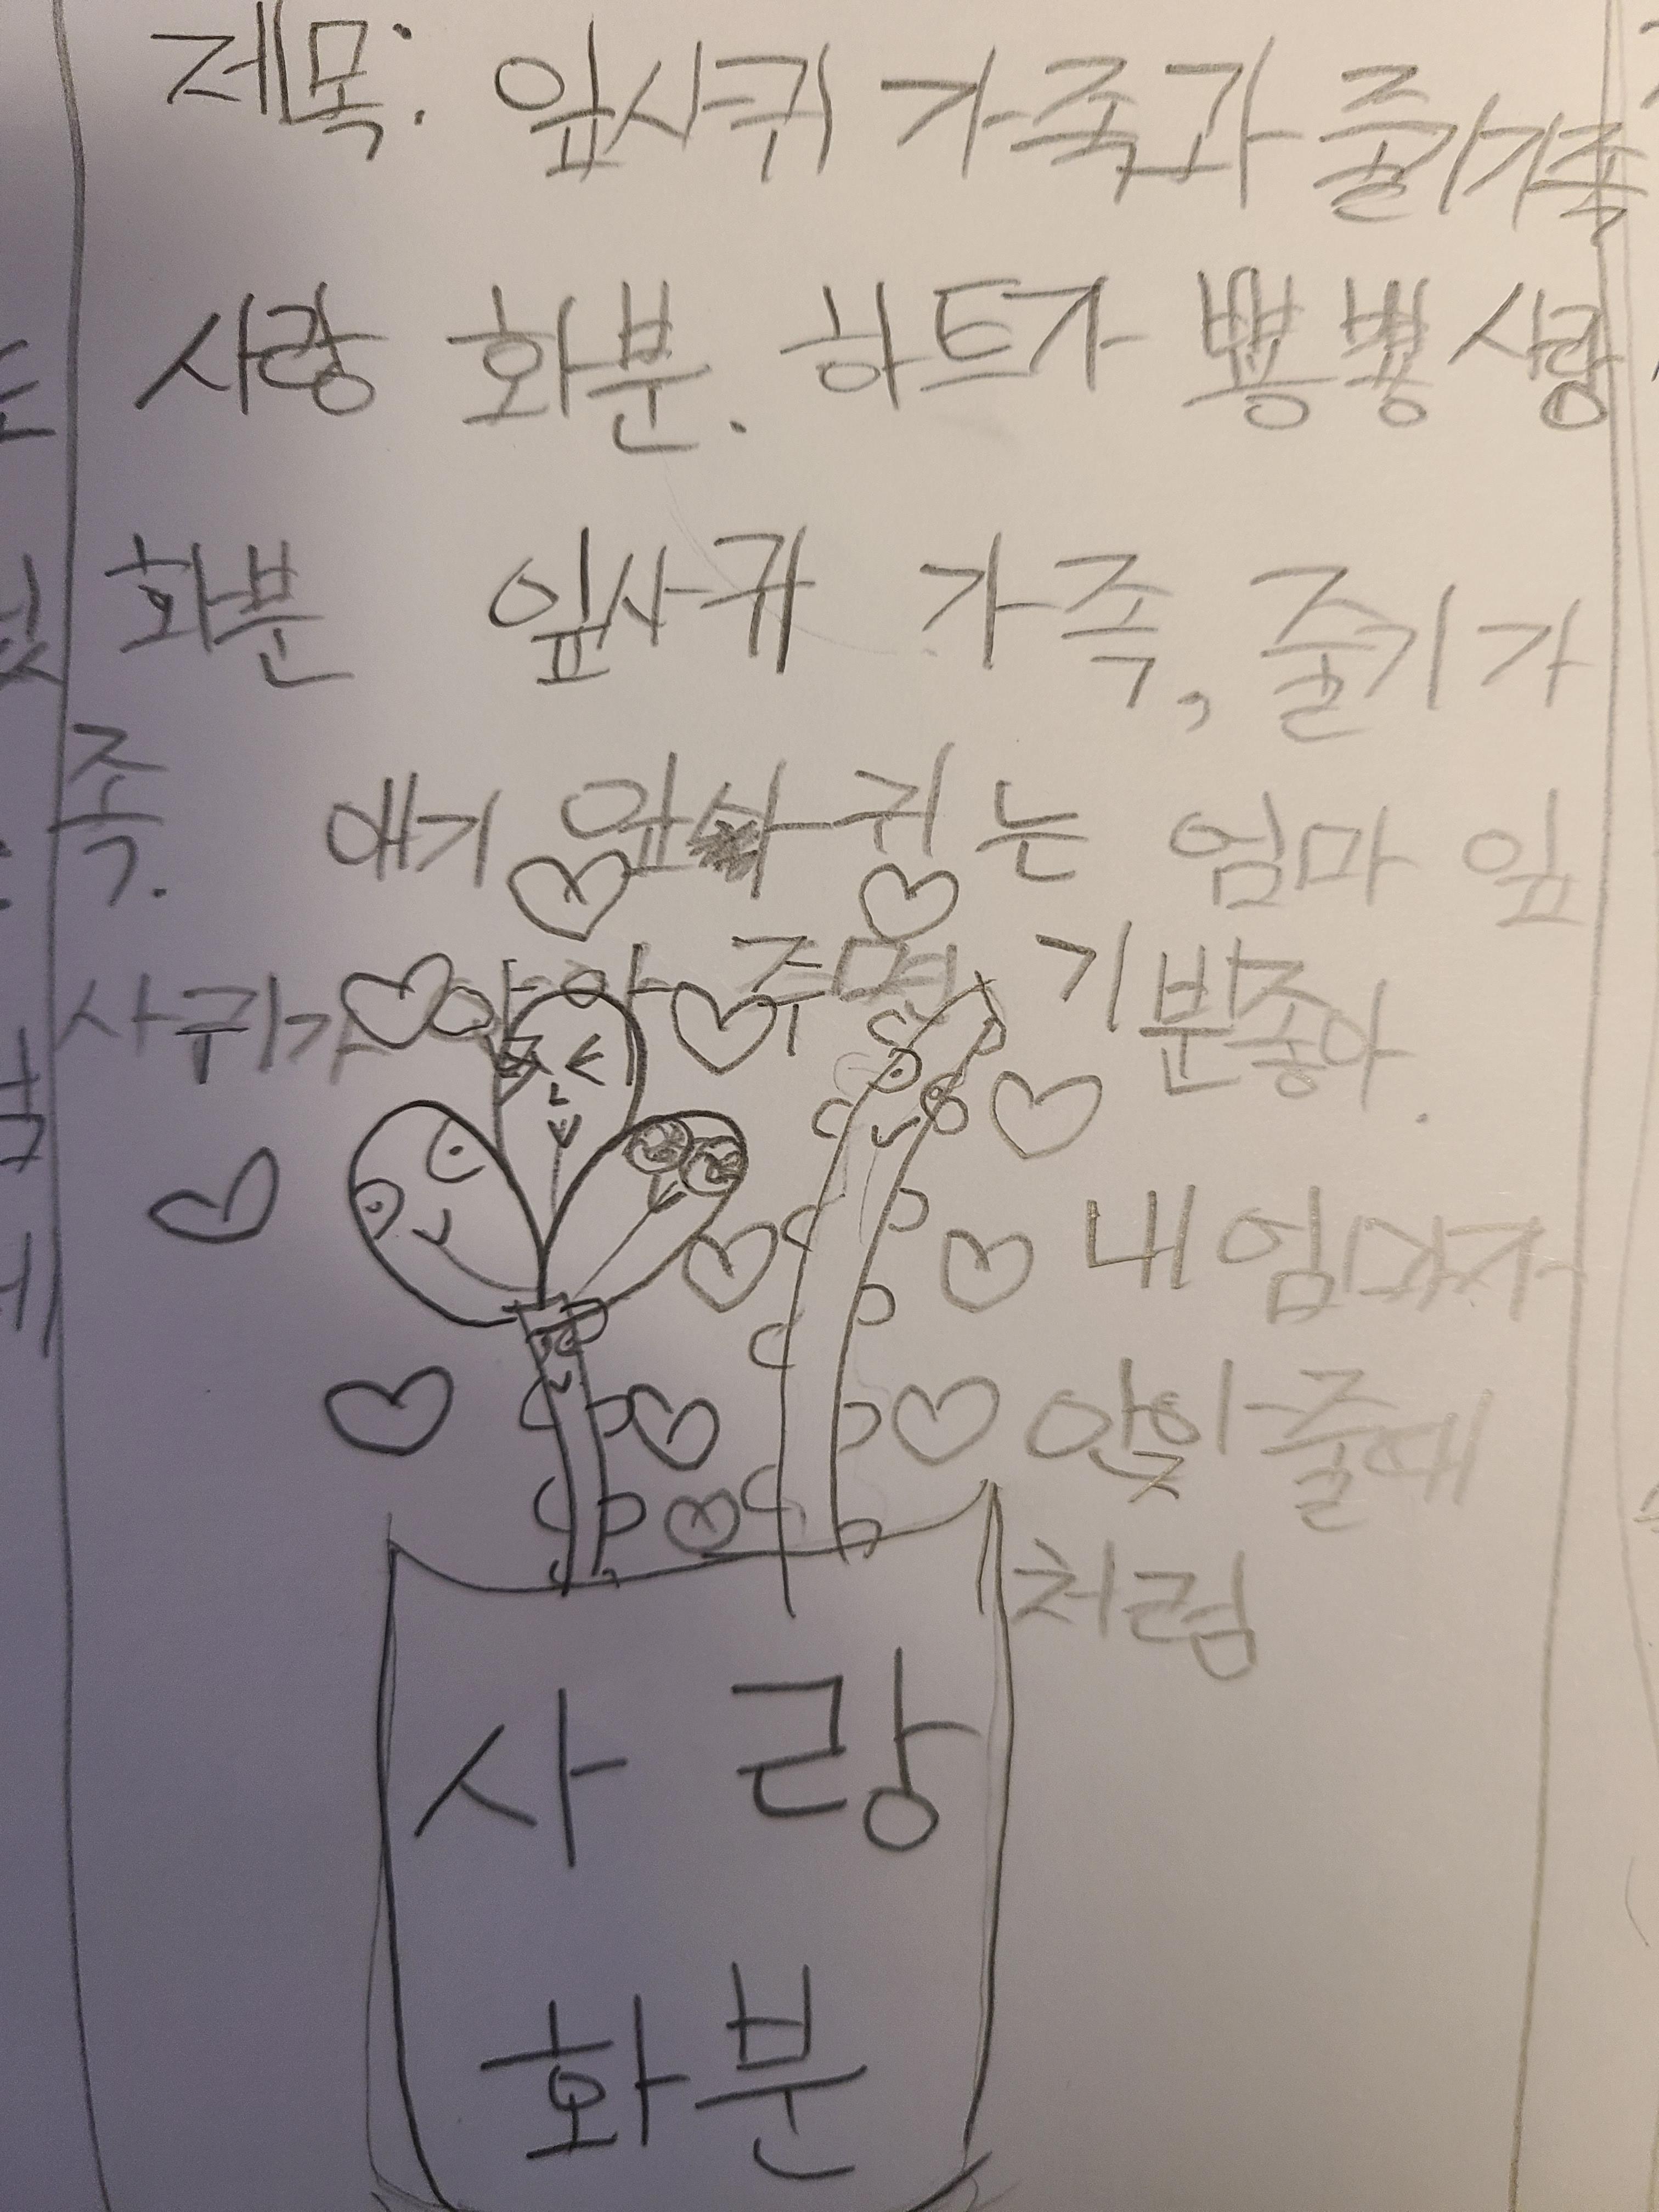 제목: 잎사귀 가족과 줄기가족
사랑 화분. 하트가 뿅뿅 사랑
화분 잎사귀 가족, 줄기가
족. 애기 잎사귀는 엄마 잎
사귀가 안아 주면 기분좋아.
내 엄마가
안아줄때
처럼
사랑
화분